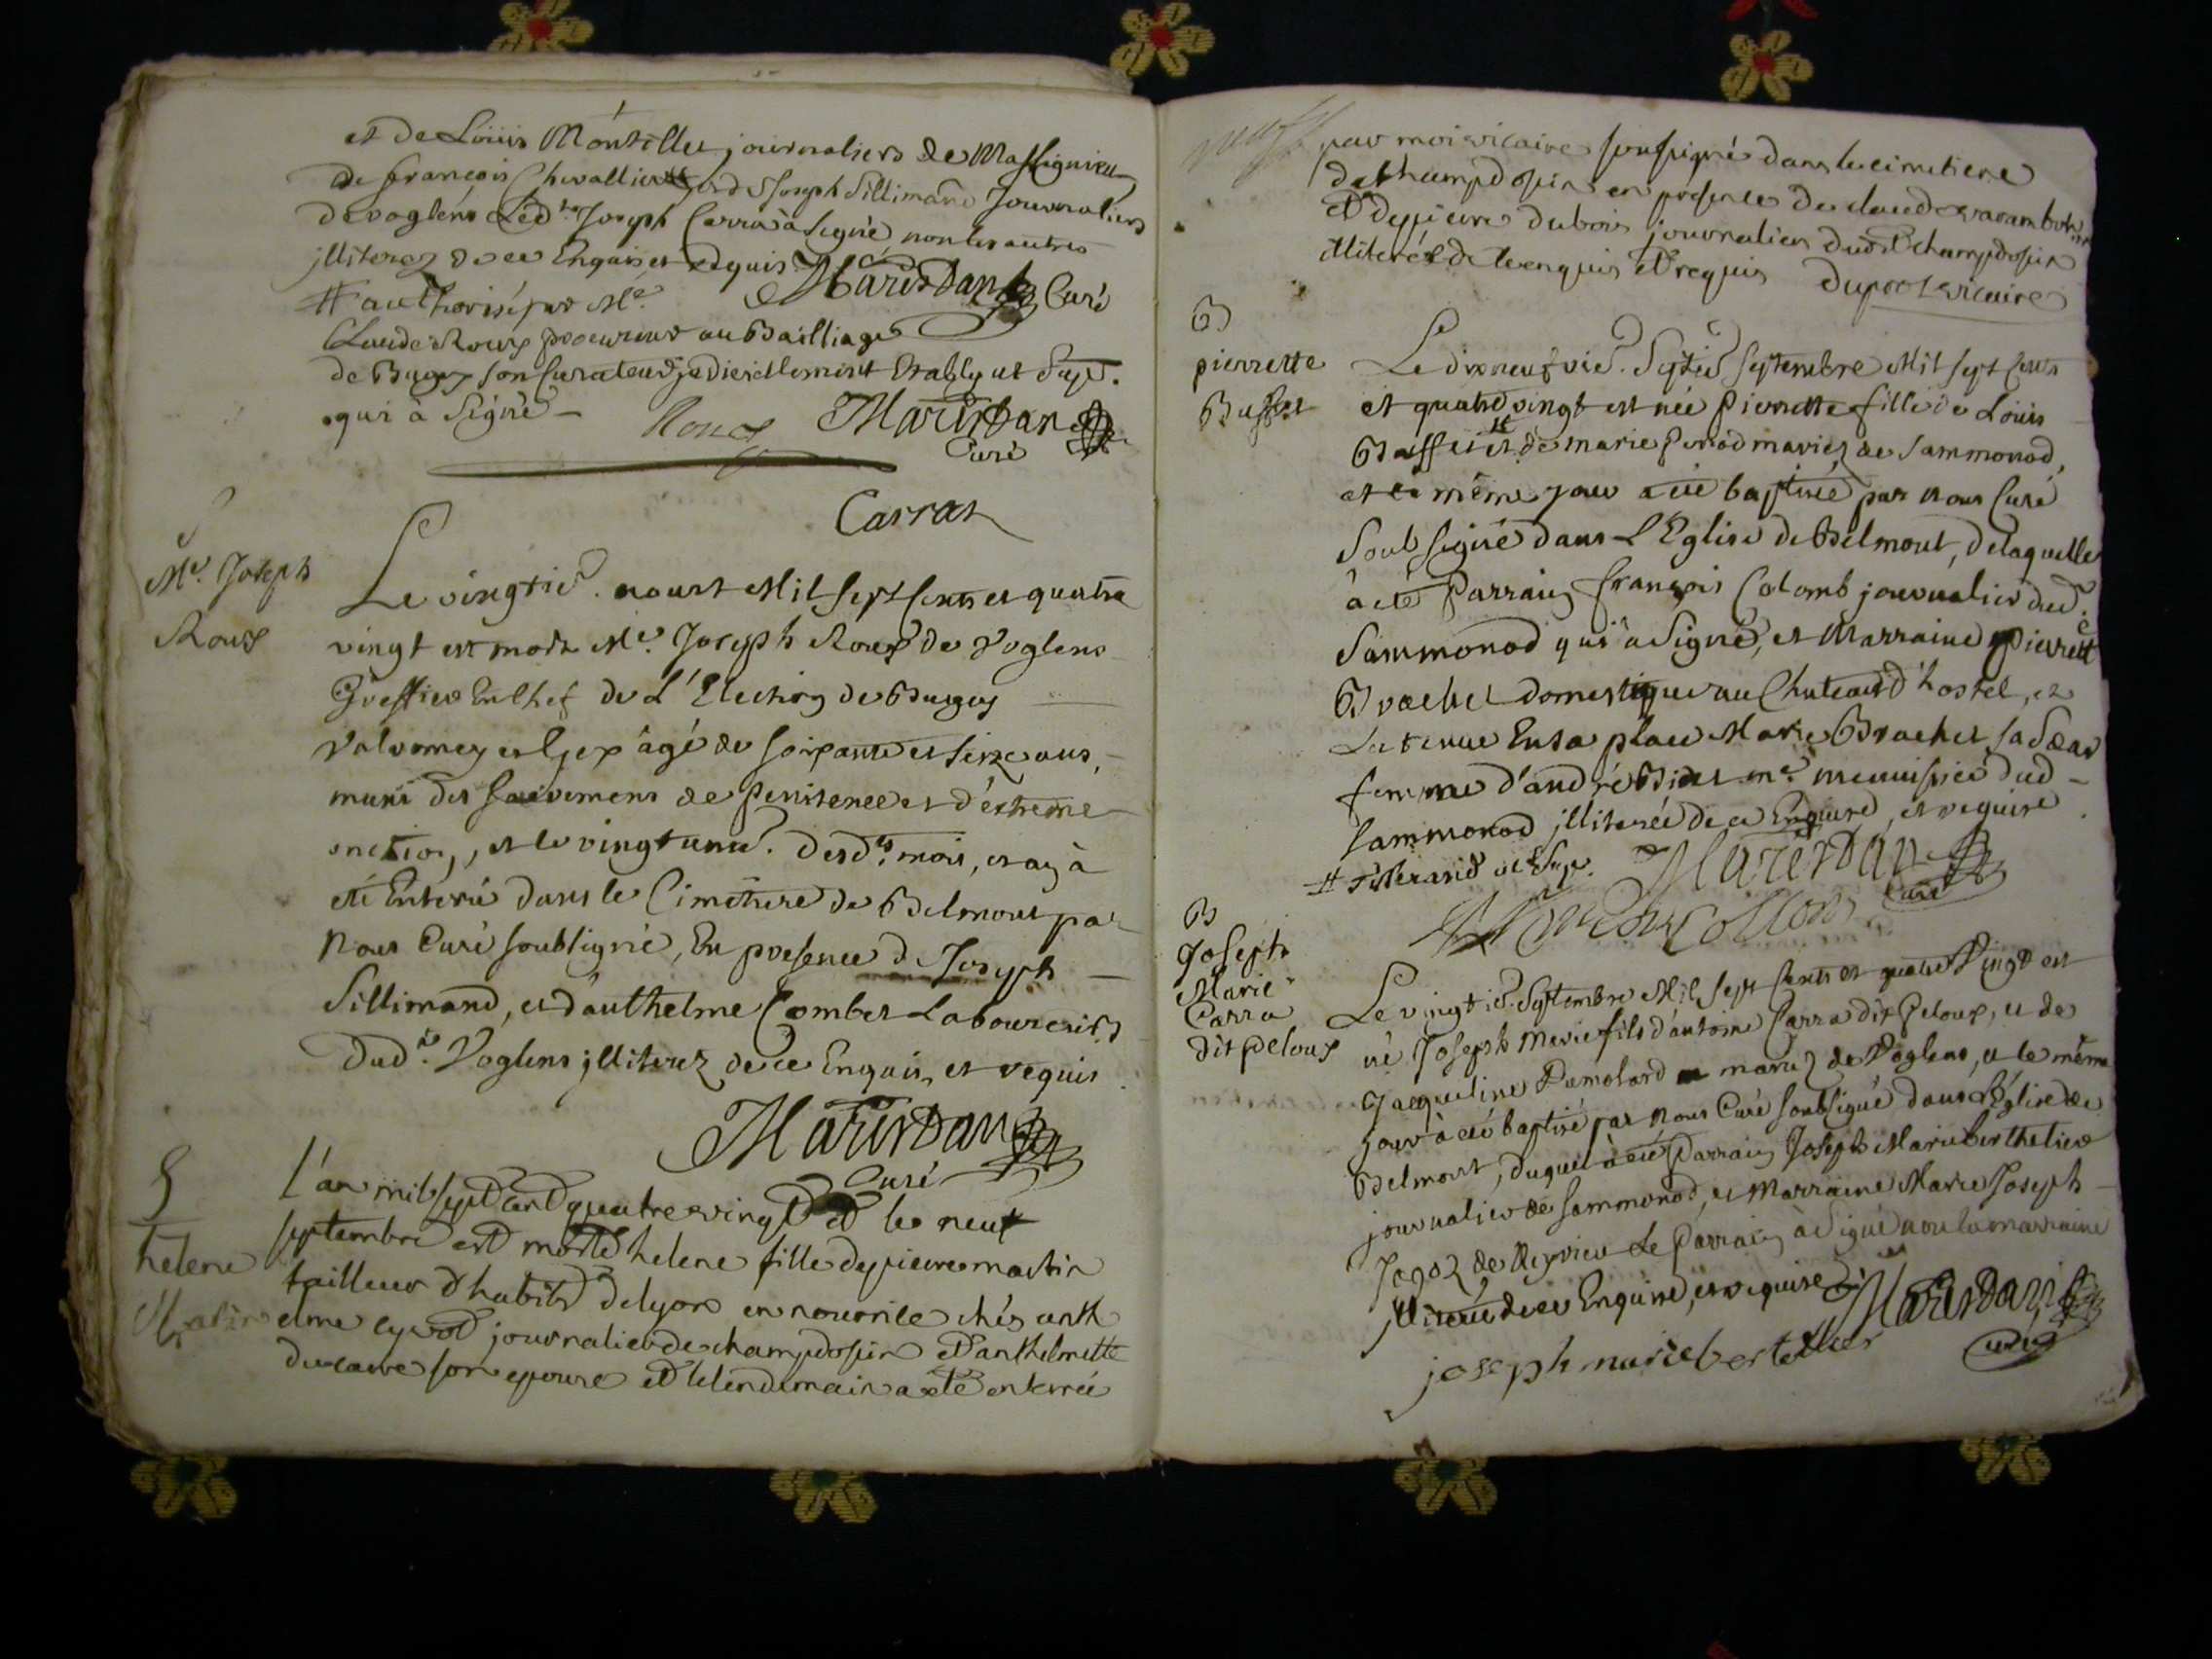 et de Loüis Montillet journaliers de Massignieu
de françois Chevallier et de Joseph Sillimand Journaliers
de voglens Led.t Joseph Carra à signé, non les autres
jlliterez de ce Enquis et requis Marindan Curé
# authorisé par Me.
Claude Roux procureur au Bailliage
de Bugey son Curateur judiciellement Etably ut Sup.
qui à Signé - Roux Marindan
Curé
Carraz
S
Me. Joseph
Roux
Le vingtie. aoust Mil sept Cents et quatre
vingt est mort Me. Joseph Roux de Voglens
Greffier En Chef de L'Election de Bugey
Valromey et Gex âgé de soixante et seize ans,
muni des sacremens de Penitence et d'extreme
onction, et le vingt unie. desd.ts mois, et an à
été Enterré dans le Cimetiere de Belmont par
Nous Curé soubsigné, En presence de Joseph
Sillimand, et d'anthelme Combet Laboureurs
dud.t Voglens jlliterez de ce Enquis, et requis
Marindan
Curé
S
helene
Martin
L'an mil sept cent quatre vingt et le neuf
septembre est morte helene fille de pierre martin
tailleur d'habits de lyon en nourrice chés anth
elme journalier de champdosin et anthelmette
ducarre son epouse et le lendemain a été enterrée
par moi vicaire soussigné dans le cimetiere
de champdosin en présence de claude varambon
et de pierre dubois journaliers dudt champdosin
illiterés de ce enquis et requis duprot vicaire
B
pierrette
Buffet
Le dixneufvie. Septembre Mil sept Cents
et quatre vingt est née Pierrette fille de Loüis
Buffet # et de marie Perrod mariez de Sammonod,
et le même jour a été baptisée par nous Curé
Soubsigné dans L'Eglise de Belmont, de laquelle
à été Parrain françois Colomb journalier dud.
Sammonod qui à Signé, et Marraine Pierrette
Brachet domestique au Chateau d'hostel, et
La tenue En sa place Marie Brachet sa Sœur
femme d'andré Bidet me. menuisier dud
Sammonod jlliterée de ce Enquise, et requise
# Tisserand ut Sup. Marindan
Curé
B
Joseph
Marie
Carra
dit Peloux
Le vingtie. Septembre Mil sept Cents et quatre Vingt est
né Joseph Marie fils d'antoine Carra dit Peloux, et de
Jacqueline Pamolard mariez de Voglens, et le même
jour à été baptisé par Nous Curé soubsigné dans L'Église de
Belmont, duquel à été Parrain Joseph Marie Berthelier
journalier de Sammonod, et Marraine Marie Joseph
de Le Parrain à Signé non la marraine
jlliterée de ce Enquise, et requise Marindan
curé
joseph marie bertellier